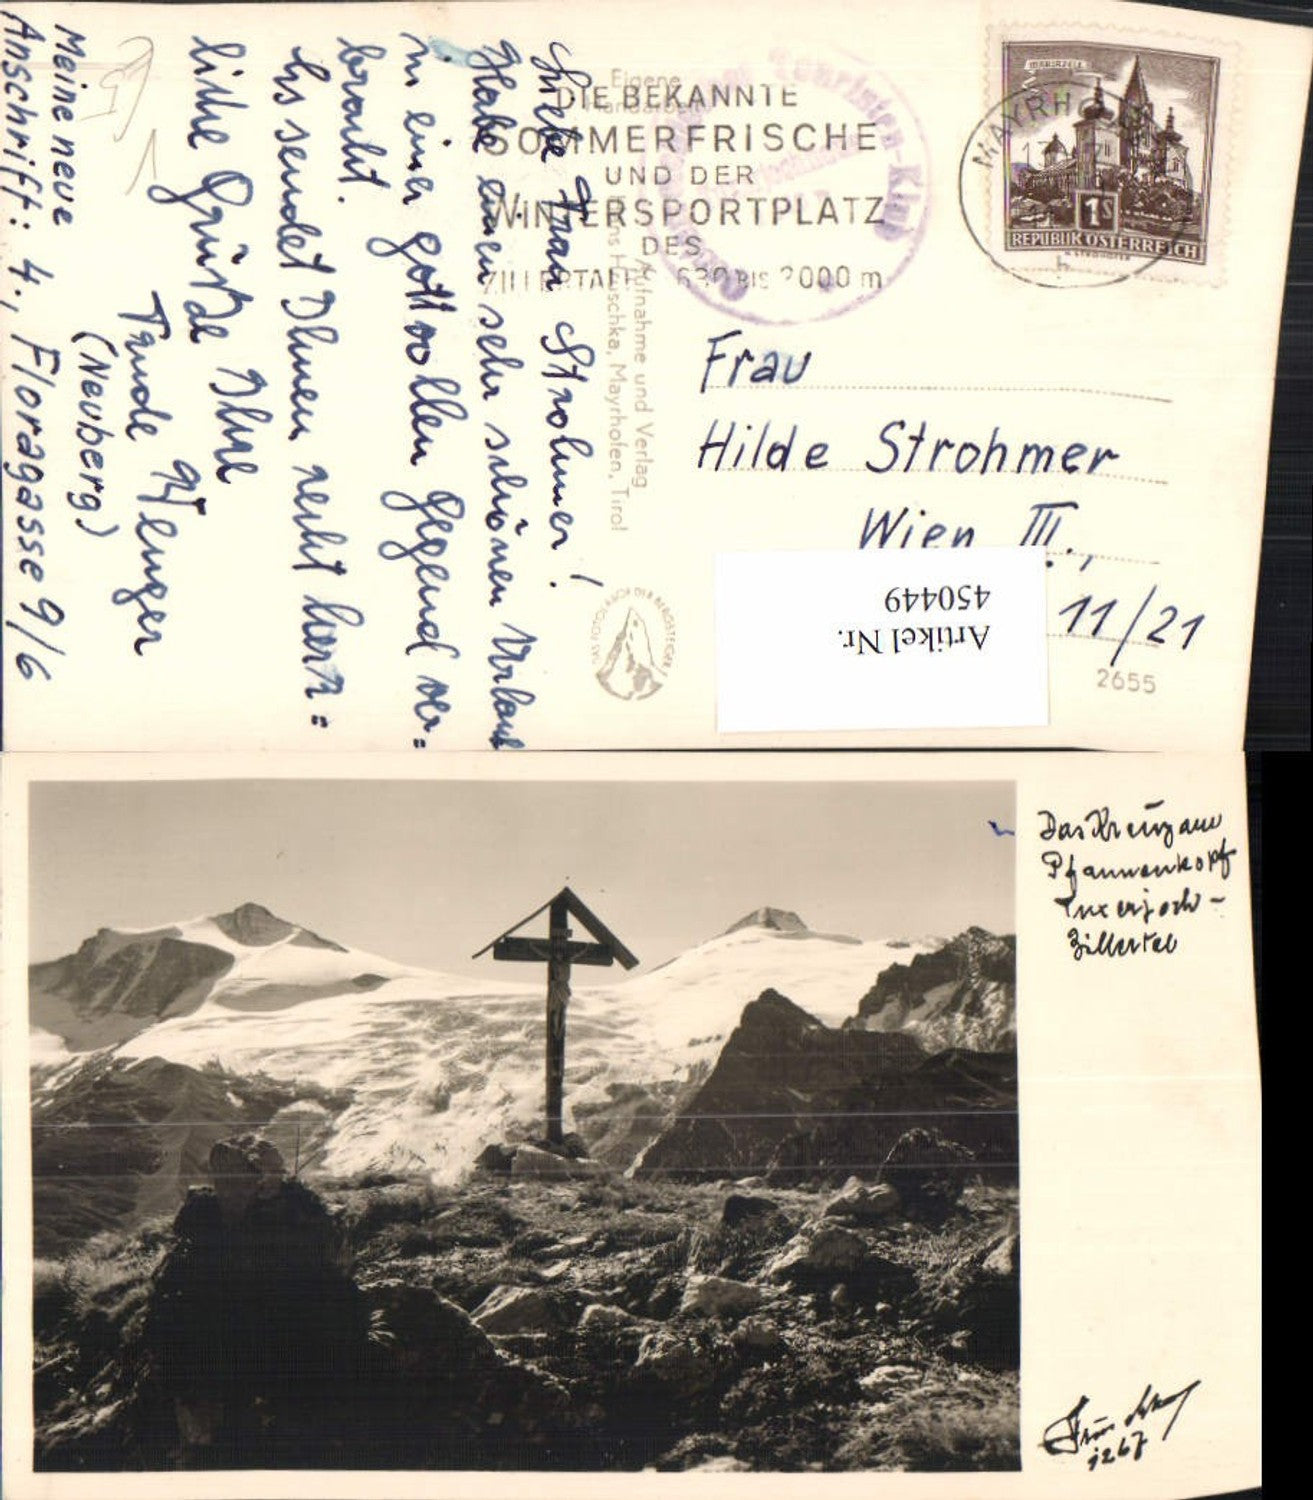 Liebe Frau Strohmer!
Habe einen sehr schönen Urlaub
in einer gottvollen Gegend ver=
bracht.
Es sendet Ihnen recht herz=
liche Grüße Ihre
Trude Wenger
(Neuberg)
Meine neue
Anschrift: 4., Floragasse 9/6
Eigene
Aufnahme und Verlag
Mayrhofen, Tirol
DIE BEKANNTE
SOMMERFRISCHE
UND DER
WINTERSPORTPLATZ
DES
ZILLERTALES 630 BIS 3000 m
MAYRH
MARIAZELL
1S
REPUBLIK ÖSTERREICH
Frau
Hilde Strohmer
Wien III.,
11/21
2655
Artikel Nr.
450449
Das Kreuz am
Pfannenkopf
Tuxerjoch-
Zillertal
1267